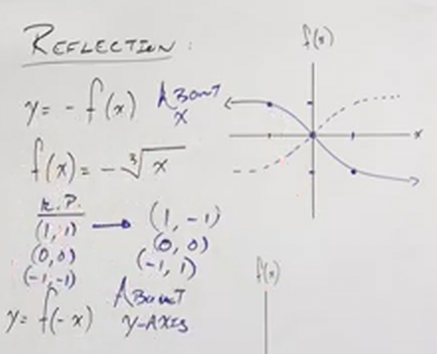 REFLECTION:
y = - f(x) ABOUT X
f(x) = - ∛x
K.P.
(1, 1) → (1, -1)
(0, 0) (0, 0)
(-1, -1) (-1, 1)
y = f(-x) ABOUT Y-AXIS
f(x)
x
f(x)